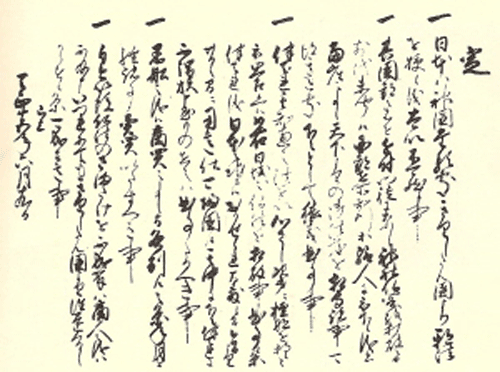 定
一 日本ハ神国たる処きりしたん国より邪法
を授候儀太以不可然候事
一 其国郡之者を近付門徒になし神社仏閣を打破
前代未聞候国郡在所知行等給人に被下候儀者
当座之事候天下よりの御法度を相守諸事可
得其意処下々として猥義曲事事
一 伴天連其知恵之法を以心さし次第に檀那を持候
と被思召候へハ如右日域之仏法を相破事曲事候条
伴天連儀日本之地ニハおかせられ間敷候間今日より
廿日之間に用意仕可帰国候其中に下々伴天連に
不謂族申懸もの在之ハ曲事たるへき事
一 黒船之儀ハ商買之事候間各別に候之条年月を
経諸事売買いたすへき事
一 自今以後仏法のさまたけを不成輩ハ商人之儀ハ
不及申いつれにてもきりしたん国より往還くるし
からす候条可成其意事
已上
天正十五年六月十九日